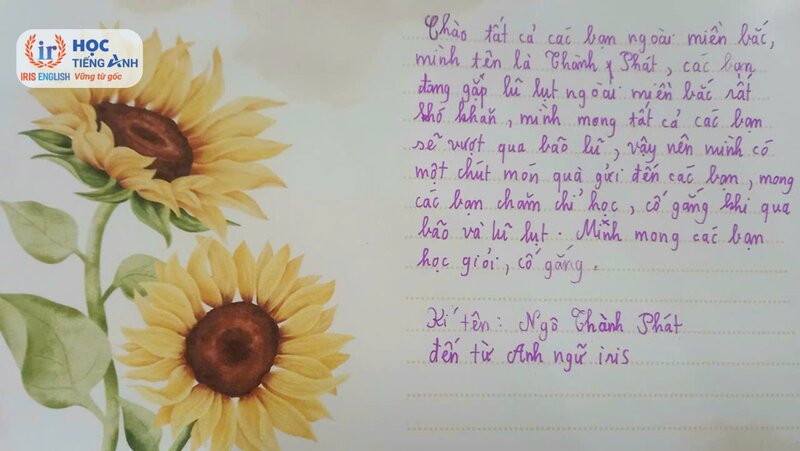 ir
IRIS ENGLISH
HỌC
TIẾNG ANH
Vững từ gốc
Chào tất cả các bạn ngoài miền bắc,
mình tên là Thành Phát, các bạn
đang gặp lũ lụt ngoài miền bắc rất
khó khăn, mình mong tất cả các bạn
sẽ vượt qua bão lũ, vậy nên mình có
một chút món quà gửi đến các bạn, mong
các bạn chăm chỉ học, cố gắng khi qua
bão và lũ lụt. Mình mong các bạn
học giỏi, cố gắng.
Kí tên: Ngô Thành Phát
đến từ Anh ngữ iris